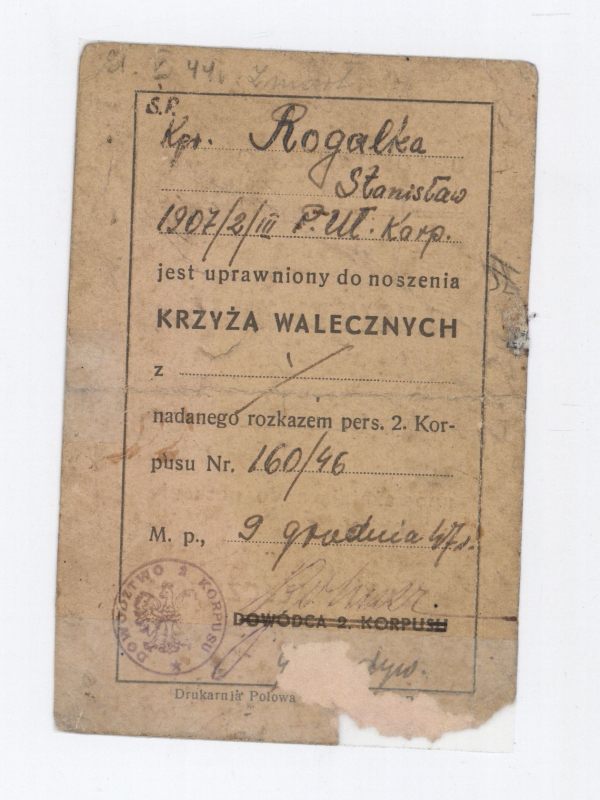 21. V 44. Zmarł
Ś.P.
Kpr. Rogalka
Stanisław
1907/2/III P. Uł. Karp.
jest uprawniony do noszenia
KRZYŻA WALECZNYCH
z
nadanego rozkazem pers. 2. Kor-
pusu Nr. 160/46
M. p., 9 grudnia 47r.
DOWÓDCA 2. KORPUSU
DOWÓDZTWO 2 KORPUSU
Drukarnia Polowa